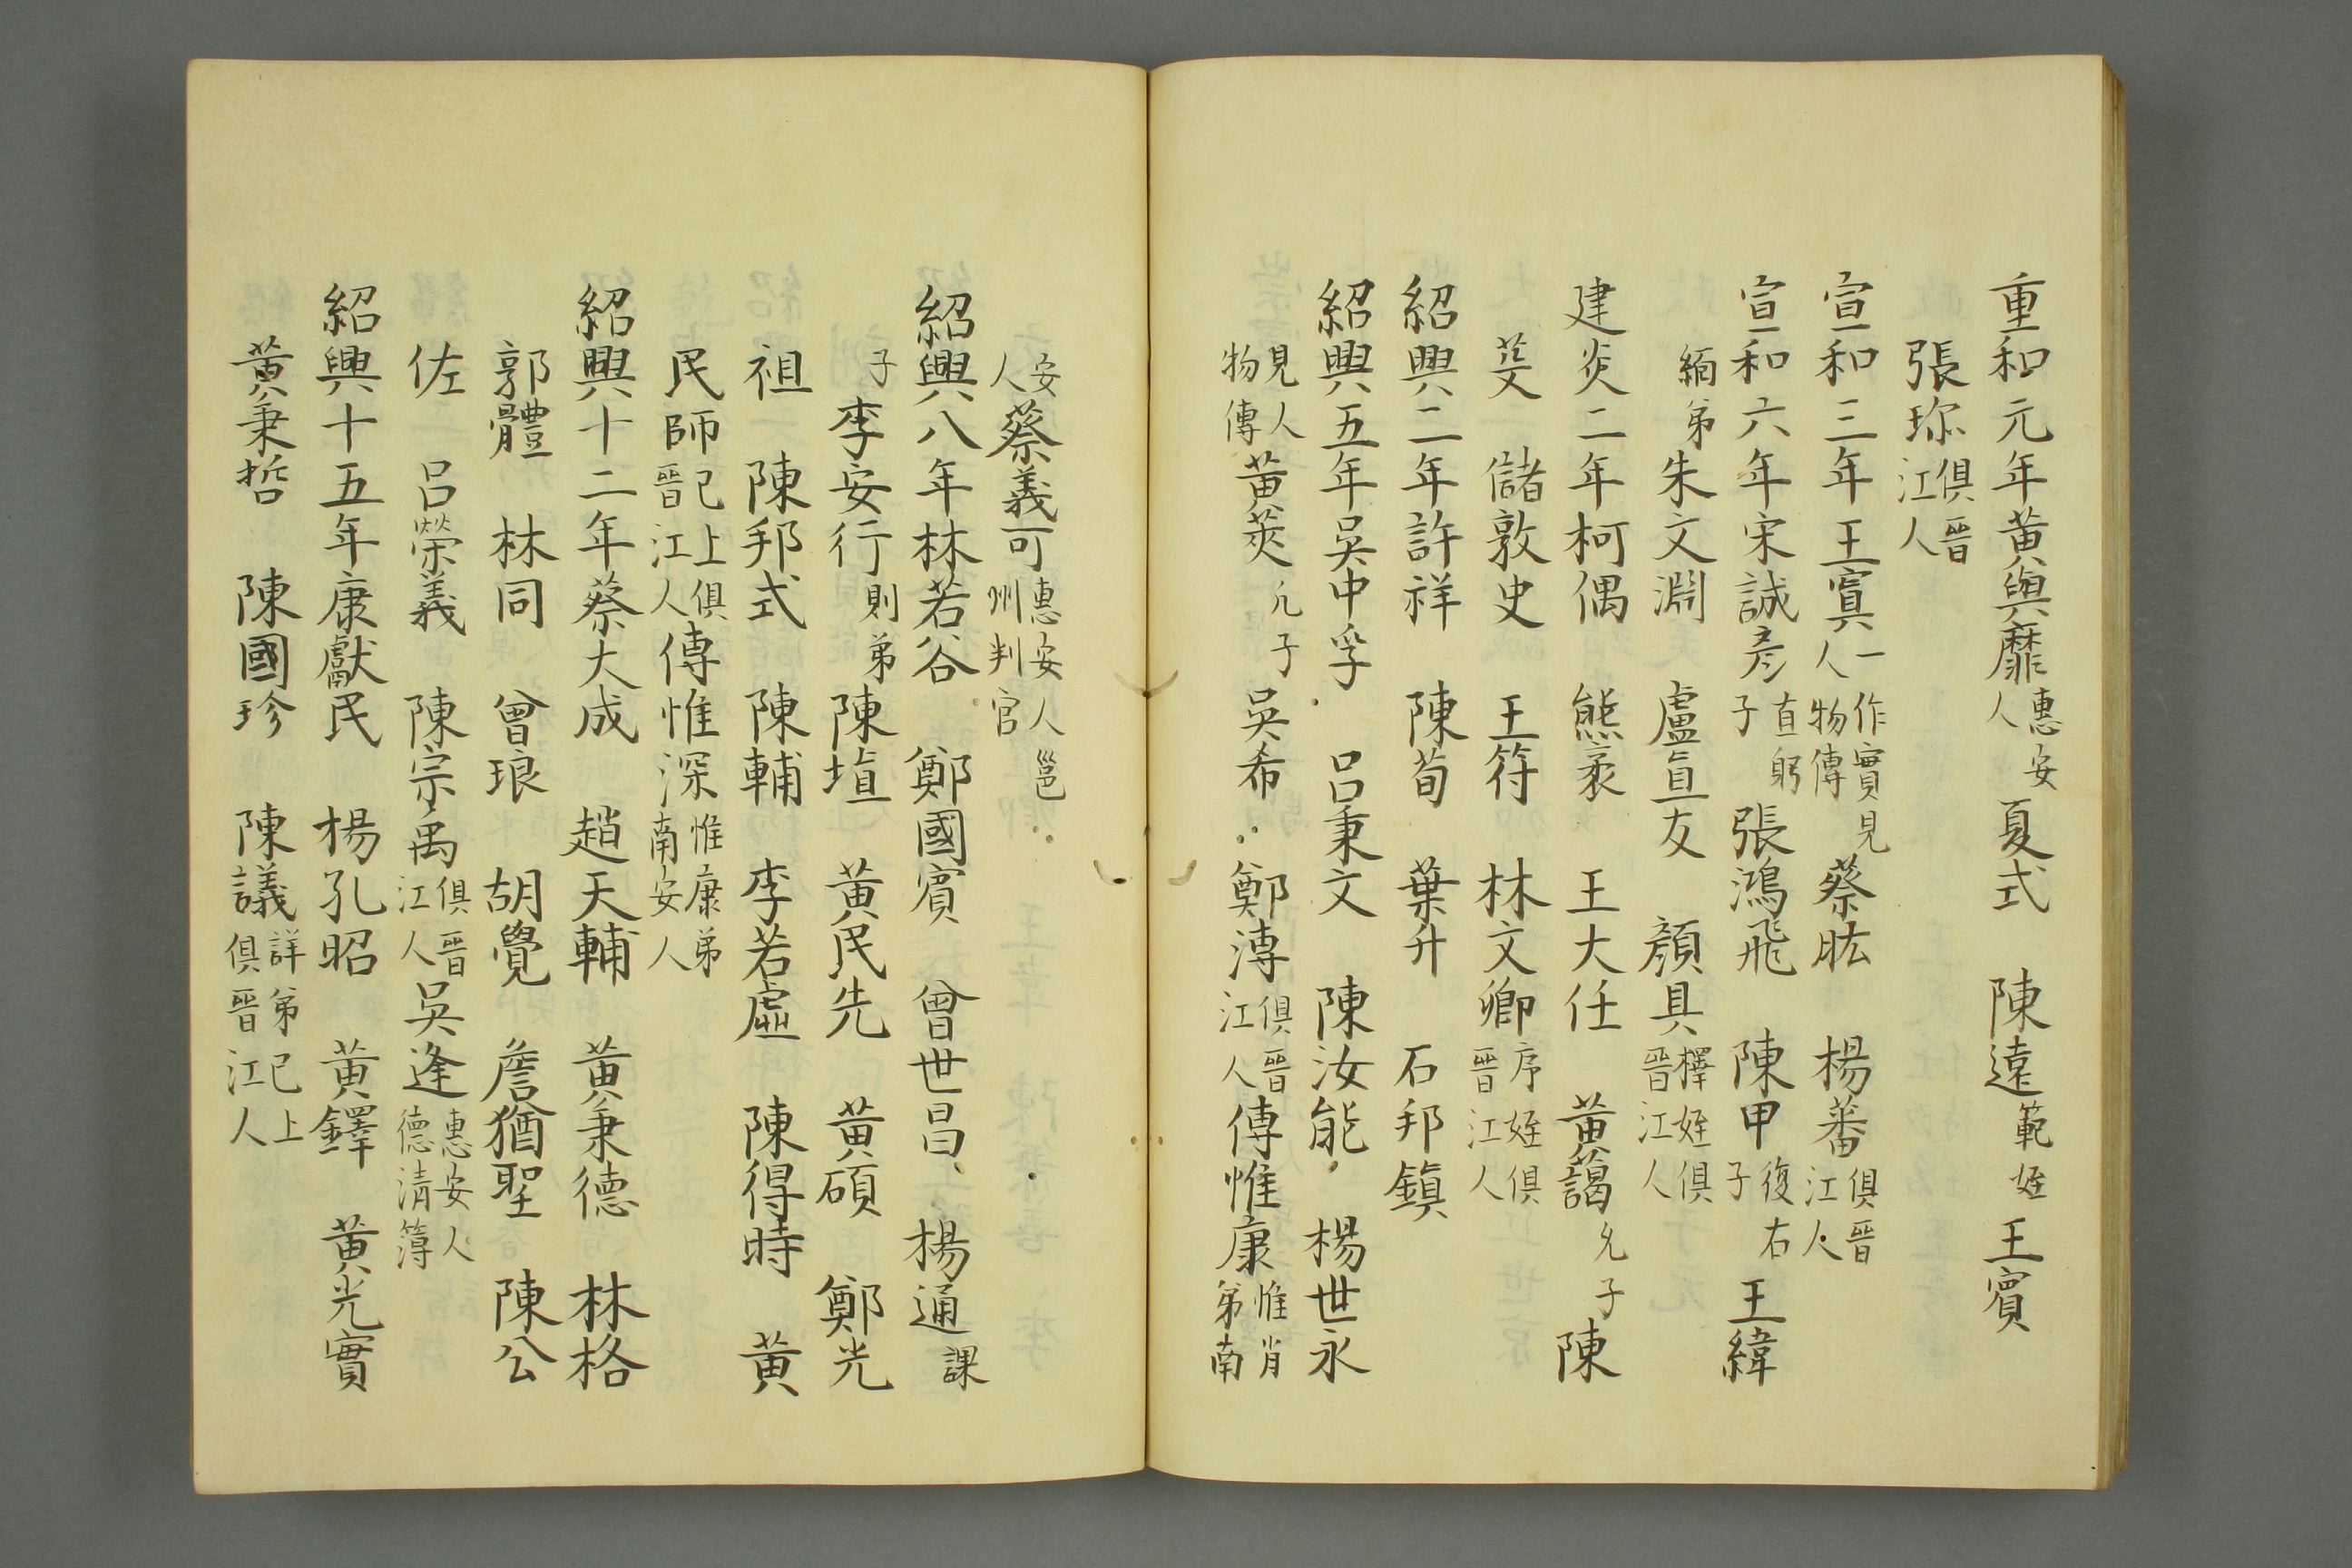 重和元年黃與𪎭惠安人夏式 陳遠範姪王賓
張珎俱晉江人
宣和三年王寘一作實見人物傳蔡肱 楊蕃俱晉江人
宣和六年宋誠彥直躬子張鴻飛 陳甲復右子王緯
緬弟朱文淵 盧直友 顏具檡姪俱晉江人
建炎二年柯偶 熊袤 王大任 黃藹允子陳
芠 儲敦史 王符 林文卿序姪俱晉江人
紹興二年許祥 陳荀 葉升 石邦鎮
紹興五年吳中孚 呂秉文 陳汝能 楊世永
見人物傳黃莢允子吳希 鄭漙俱晉江人傅惟康惟肖弟南
安人蔡義可惠安人邕州判官
紹興八年林若谷 鄭國賓 曾世昌 楊通課
子李安行則弟陳埴 黃民先 黃碩 鄭光
祖 陳邦式 陳輔 李若虛 陳得時 黃
民師已上俱晉江人傅惟深惟康弟南安人
紹興十二年蔡大成 趙天輔 黃秉德 林格
郭體 林同 曾琅 胡覺 詹猶聖 陳公
佐 呂榮義 陳宗禹俱晉江人吳逢惠安人德清簿
紹興十五年康獻民 楊孔昭 黃鐸 黃光實
黃秉哲 陳國珍 陳議詳弟已上俱晉江人